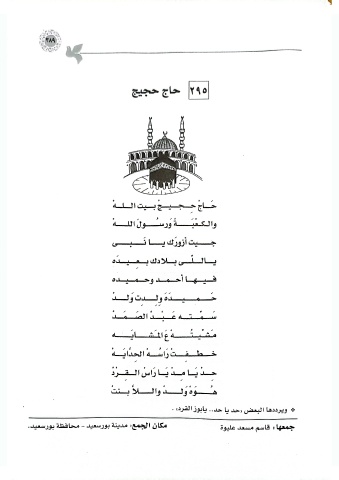 ٣٨٩
٢٩٥ حاج حجيج
حَاجْ حِجِيجْ بيت اللهْ
والكَعْبَةْ وَرسُولَ اللهْ
جيت أزورَك يا نَبِى
ياللّى بلادك بعِيدَه
فيها أحمد وحميده
حَمِيدَه ولِدِتْ وَلَدْ
سَمّتُه عَبْدِ الصَّمَدْ
مَشّيتُهْ عَ المَشَايَهْ
خطَفِتْ رَاسُهْ الحِدَّايَهْ
حِدْ يَا مِدْ يَا رَاسِ القِرْدْ
هُوّهْ وَلَدْ واللاَّ بِنْتْ
* ويرددها البعض: حد يا حد.. يابوز القرد، .
جمعها: قاسم مسعد عليوة مكان الجمع: مدينة بورسعيد - محافظة بورسعيد.